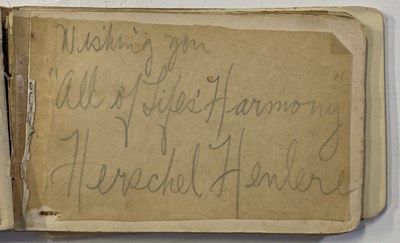 Wishing you
"All of Lifes' Harmony"
Herschel Henlere